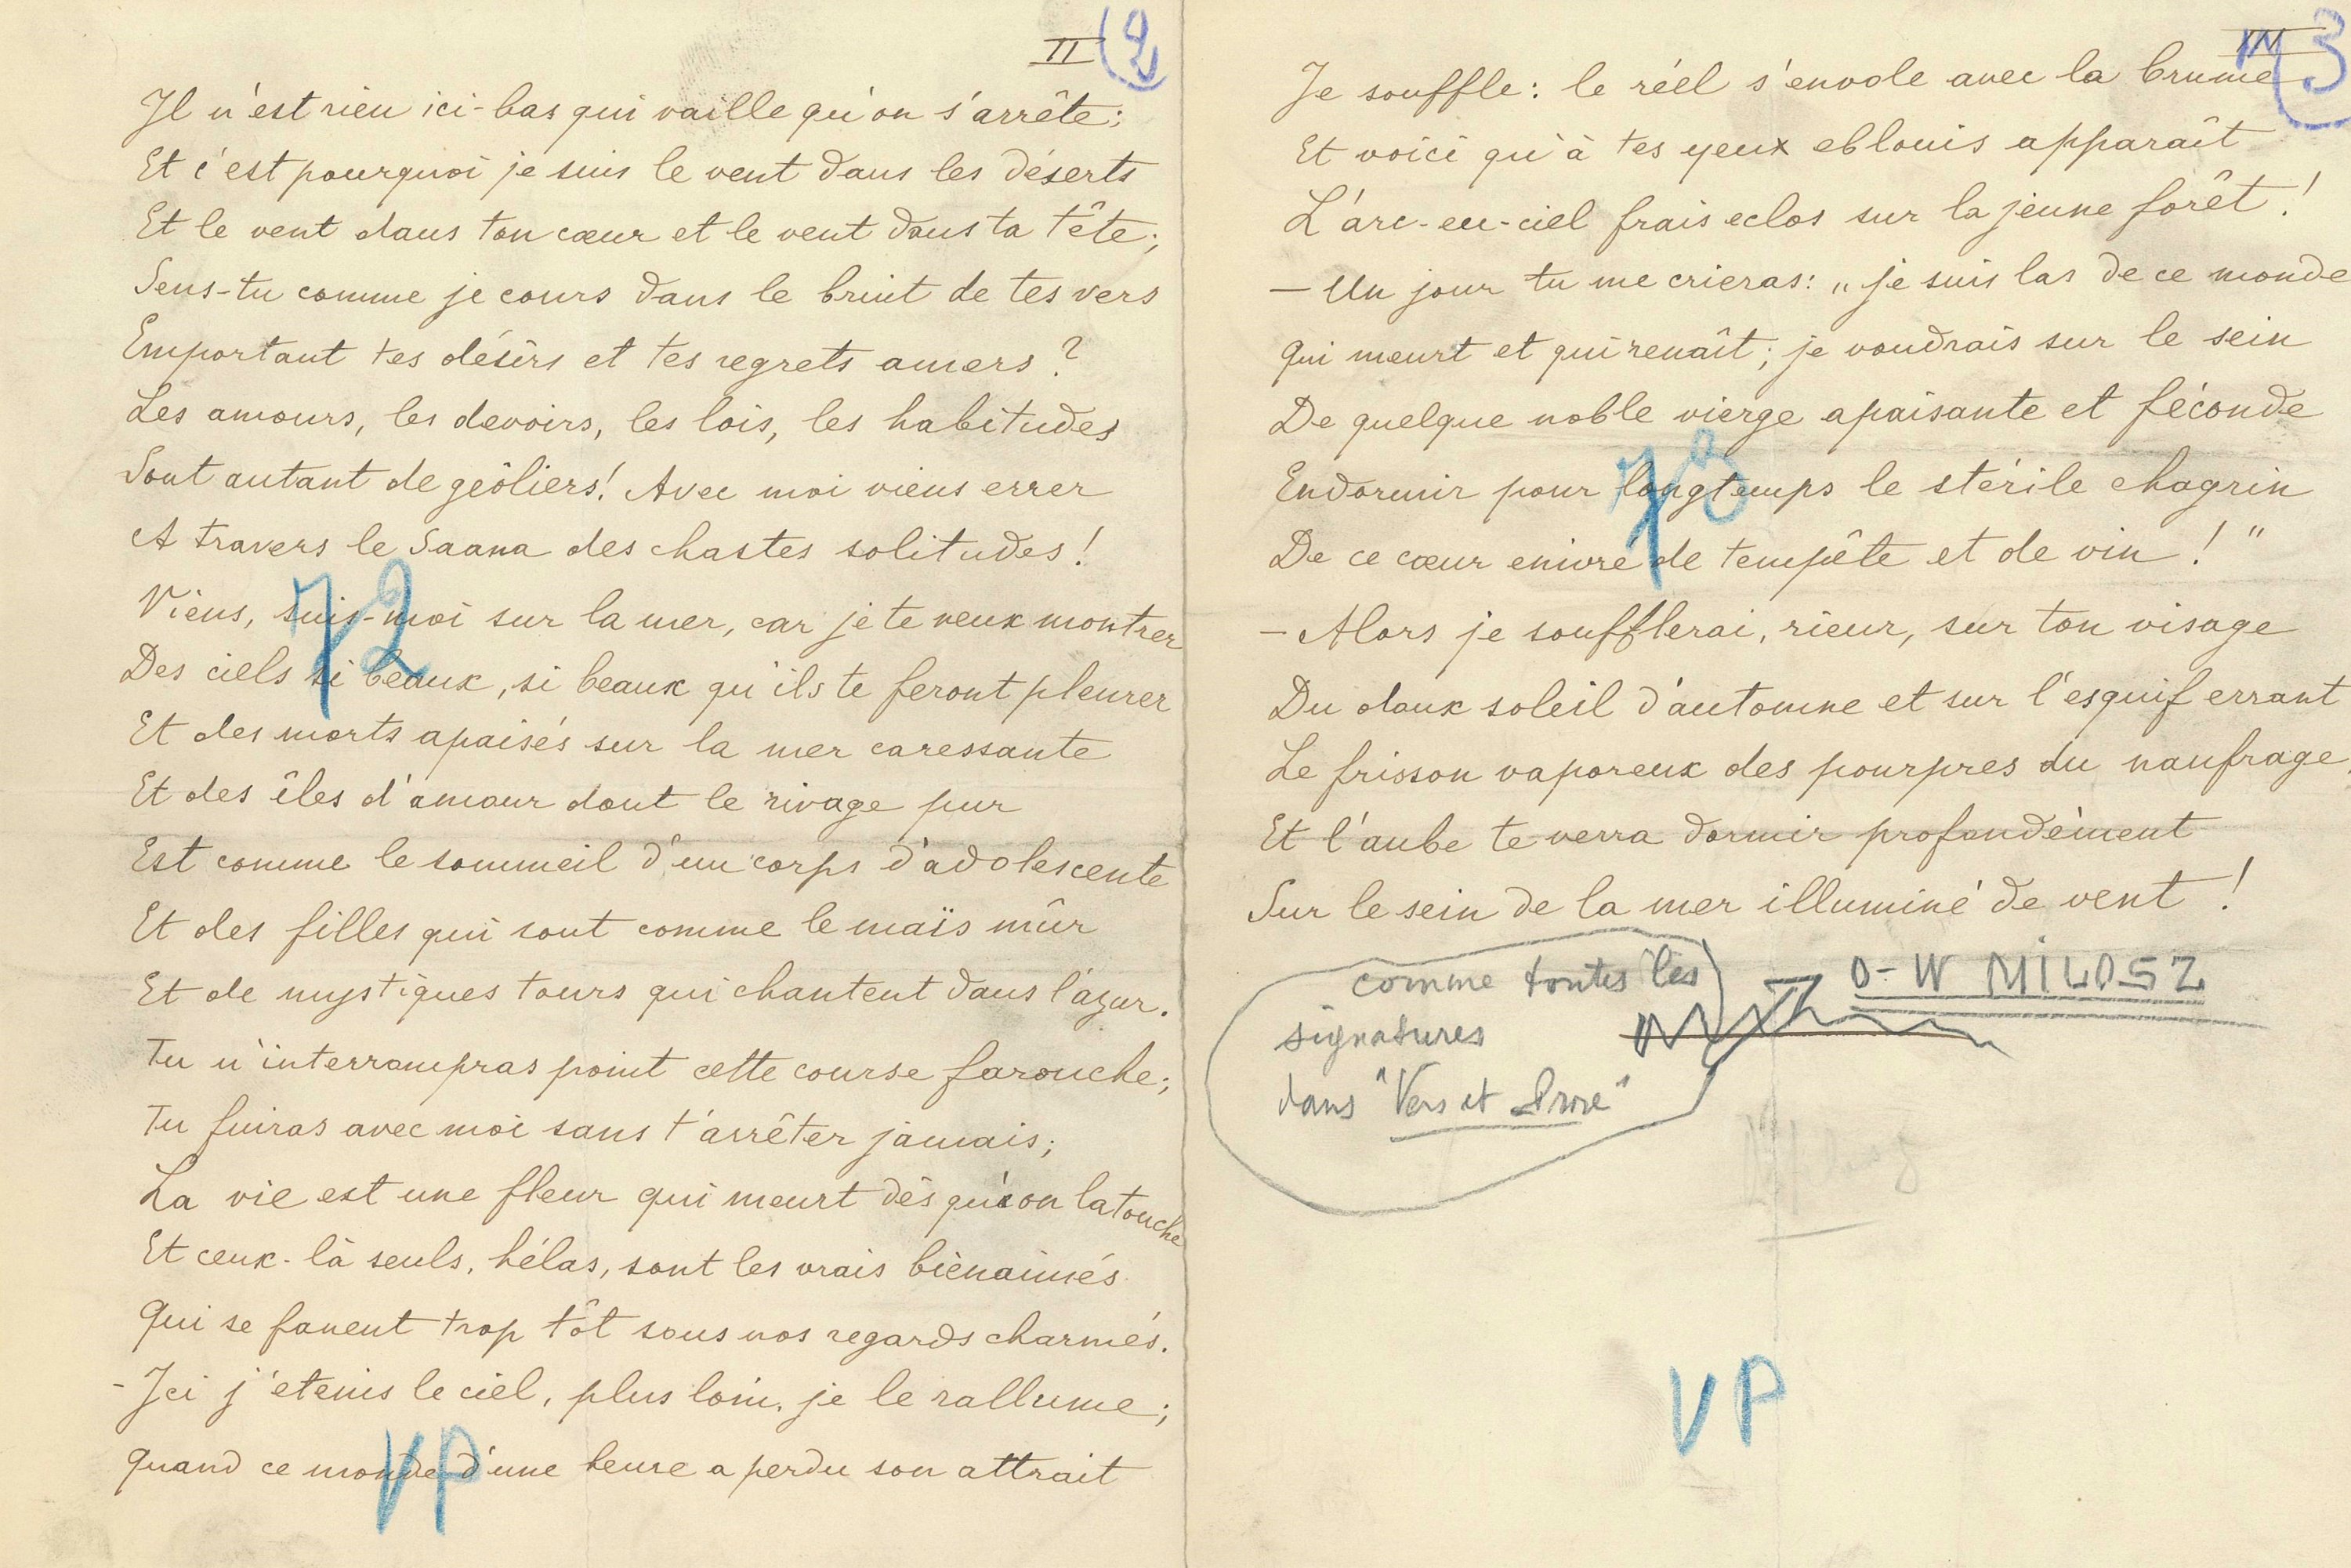 II (2
Il n'est rien ici-bas qui vaille qu'on s'arrête;
Et c'est pourquoi je suis le vent dans les déserts
Et le vent dans ton cœur et le vent dans ta tête;
Sens-tu comme je cours dans le bruit de tes vers
Emportant tes désirs et tes regrets amers?
Les amours, les devoirs, les lois, les habitudes
Sont autant de geôliers! Avec moi viens errer
A travers le Saana des chastes solitudes!
72
Viens, suis-moi sur la mer, car je te veux montrer
Des ciels si beaux, si beaux qu'ils te feront pleurer
Et des morts apaisés sur la mer caressante
Et des îles d'amour dont le rivage pur
Est comme le sommeil d'un corps d'adolescente
Et des filles qui sont comme le maïs mûr
Et de mystiques tours qui chantent dans l'azur.
Tu n'interrompras point cette course farouche;
Tu fuiras avec moi sans t'arrêter jamais;
La vie est une fleur qui meurt dès qu'on la touche
Et ceux-là seuls, hélas, sont les vrais bienaimés
Qui se fanent trop tôt sous nos regards charmés.
- Ici j'eteins le ciel, plus loin, je le rallume;
Quand ce monde d'une heure a perdu son attrait
VP
III (3
Je souffle: le réel s'envole avec la brume
Et voici qu'à tes yeux eblouis apparaît
L'arc-en-ciel frais eclos sur la jeune forêt!
— Un jour tu me crieras: „je suis las de ce monde
Qui meurt et qui renaît; je voudrais sur le sein
De quelque noble vierge apaisante et féconde
Endormir pour longtemps le stérile chagrin
73
De ce cœur enivré de tempête et de vin!"
— Alors je soufflerai, rieur, sur ton visage
Du doux soleil d'automne et sur l'esquif errant
Le frisson vaporeux des pourpres du naufrage
Et l'aube te verra dormir profondément
Sur le sein de la mer illuminé de vent!
comme toutes les
signatures
dans "Vers et Prose"
O-W MILOSZ
VP